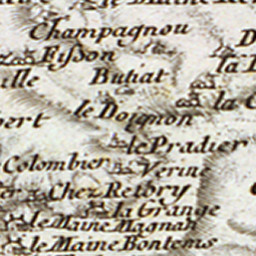 Champagnou
Fisson
ille
Butiat
la D
le Doignon
la C
bert
le Pradier
Colombier
Verine
Chez Retory
la Grange
le Maine Magnan
le Maine Bontems